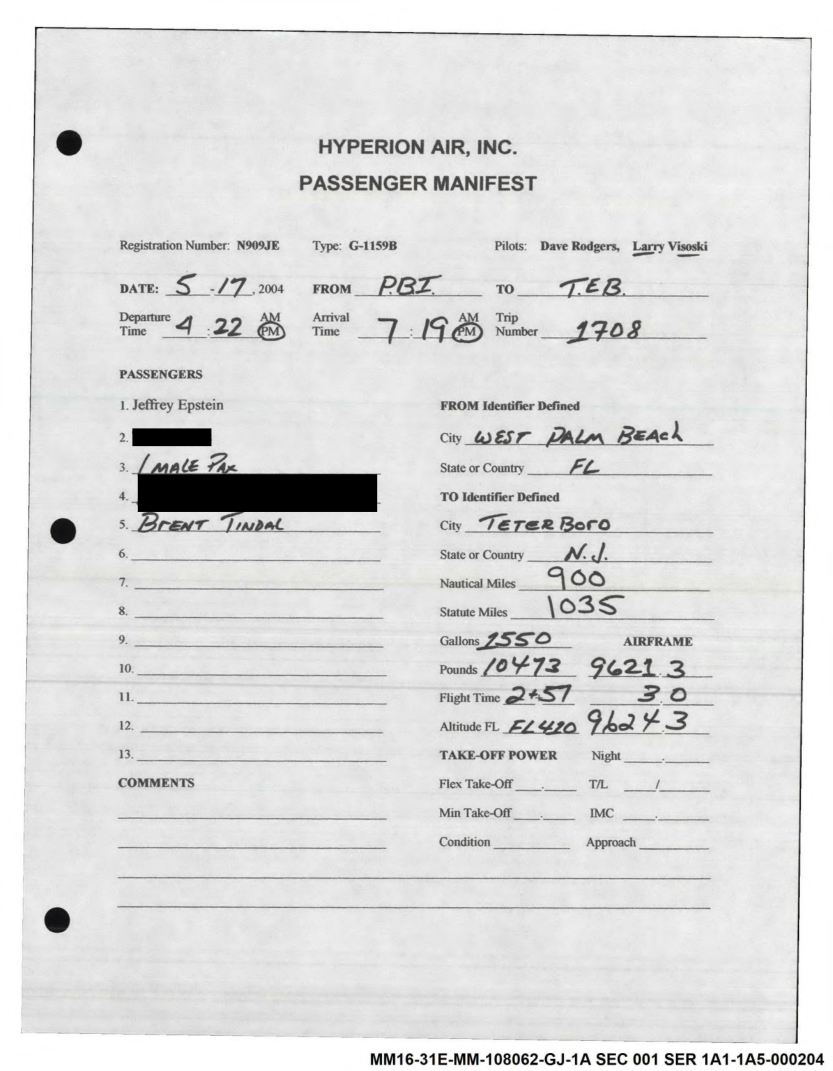 HYPERION AIR, INC.
PASSENGER MANIFEST
Registration Number: N909JE Type: G-1159B Pilots: Dave Rodgers, Larry Visoski
DATE: 5 - 17, 2004 FROM P.B.I. TO T.E.B.
Departure Time 4 : 22 AM PM Arrival Time 7 : 19 AM PM Trip Number 1708
PASSENGERS
1. Jeffrey Epstein FROM Identifier Defined
2. City WEST PALM BEACh
3. 1 MALE PAX State or Country FL
4. TO Identifier Defined
5. BRENT TINDAL City TETERBORO
6. State or Country N.J.
7. Nautical Miles 900
8. Statute Miles 1035
9. Gallons 1550 AIRFRAME
10. Pounds 10473 9621.3
11. Flight Time 2+57 3.0
12. Altitude FL FL420 9624.3
13. TAKE-OFF POWER Night
COMMENTS Flex Take-Off T/L /
Min Take-Off IMC
Condition Approach
MM16-31E-MM-108062-GJ-1A SEC 001 SER 1A1-1A5-000204